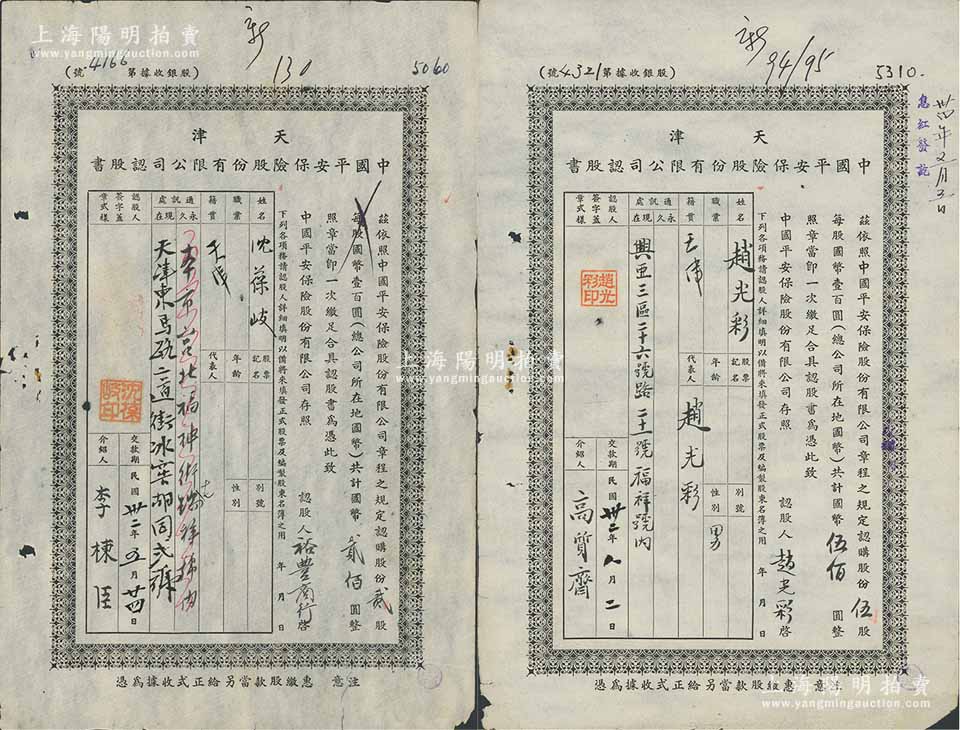 上海陽明拍賣
www.yangmingauction.com
新
(號4166第據收銀股)
130
5060
津天
書股認司公限有份股險保安平國中
茲依照中國平安保險股份有限公司章程之規定認購股份貳股
每股國幣壹百圓(總公司所在地國幣)共計國幣貳佰圓整
照章當卽一次繳足合具認股書為憑此致
中國平安保險股份有限公司存照
認股人裕豐商行啓
年月日
下列各項務請認股人詳細填明以備將來填發正式股票及編製股東名簿之用
姓名
沈葆岐
股票記名
別號
職業
年齡
性別
籍貫
天津
代表人
通訊處
永久
現在
天津東馬路二道街冰窖胡同弍號
認股人簽字蓋章式樣
沈葆岐印
交款期民國卅二年五月廿四日
介紹人
李棟臣
憑為據收式正給另當款股繳惠 意注
新
(號4321第據收銀股)
94/95
5310.
息紅發訖
津天
書股認司公限有份股險保安平國中
茲依照中國平安保險股份有限公司章程之規定認購股份伍股
每股國幣壹百圓(總公司所在地國幣)共計國幣伍佰圓整
照章當卽一次繳足合具認股書為憑此致
中國平安保險股份有限公司存照
認股人趙光彩啓
年月日
下列各項務請認股人詳細填明以備將來填發正式股票及編製股東名簿之用
姓名
趙光彩
股票記名
別號
職業
年齡
性別
男
籍貫
天津
代表人
趙光彩
通訊處
永久
現在
興亞三區二十六號路二十一號福祥號內
認股人簽字蓋章式樣
趙光彩印
交款期民國卅二年八月二日
介紹人
高質齋
憑為據收式正給另當款股繳惠 意注
上海陽明拍賣
www.yangmingauction.com
上海陽明拍賣
www.yangmingauction.com